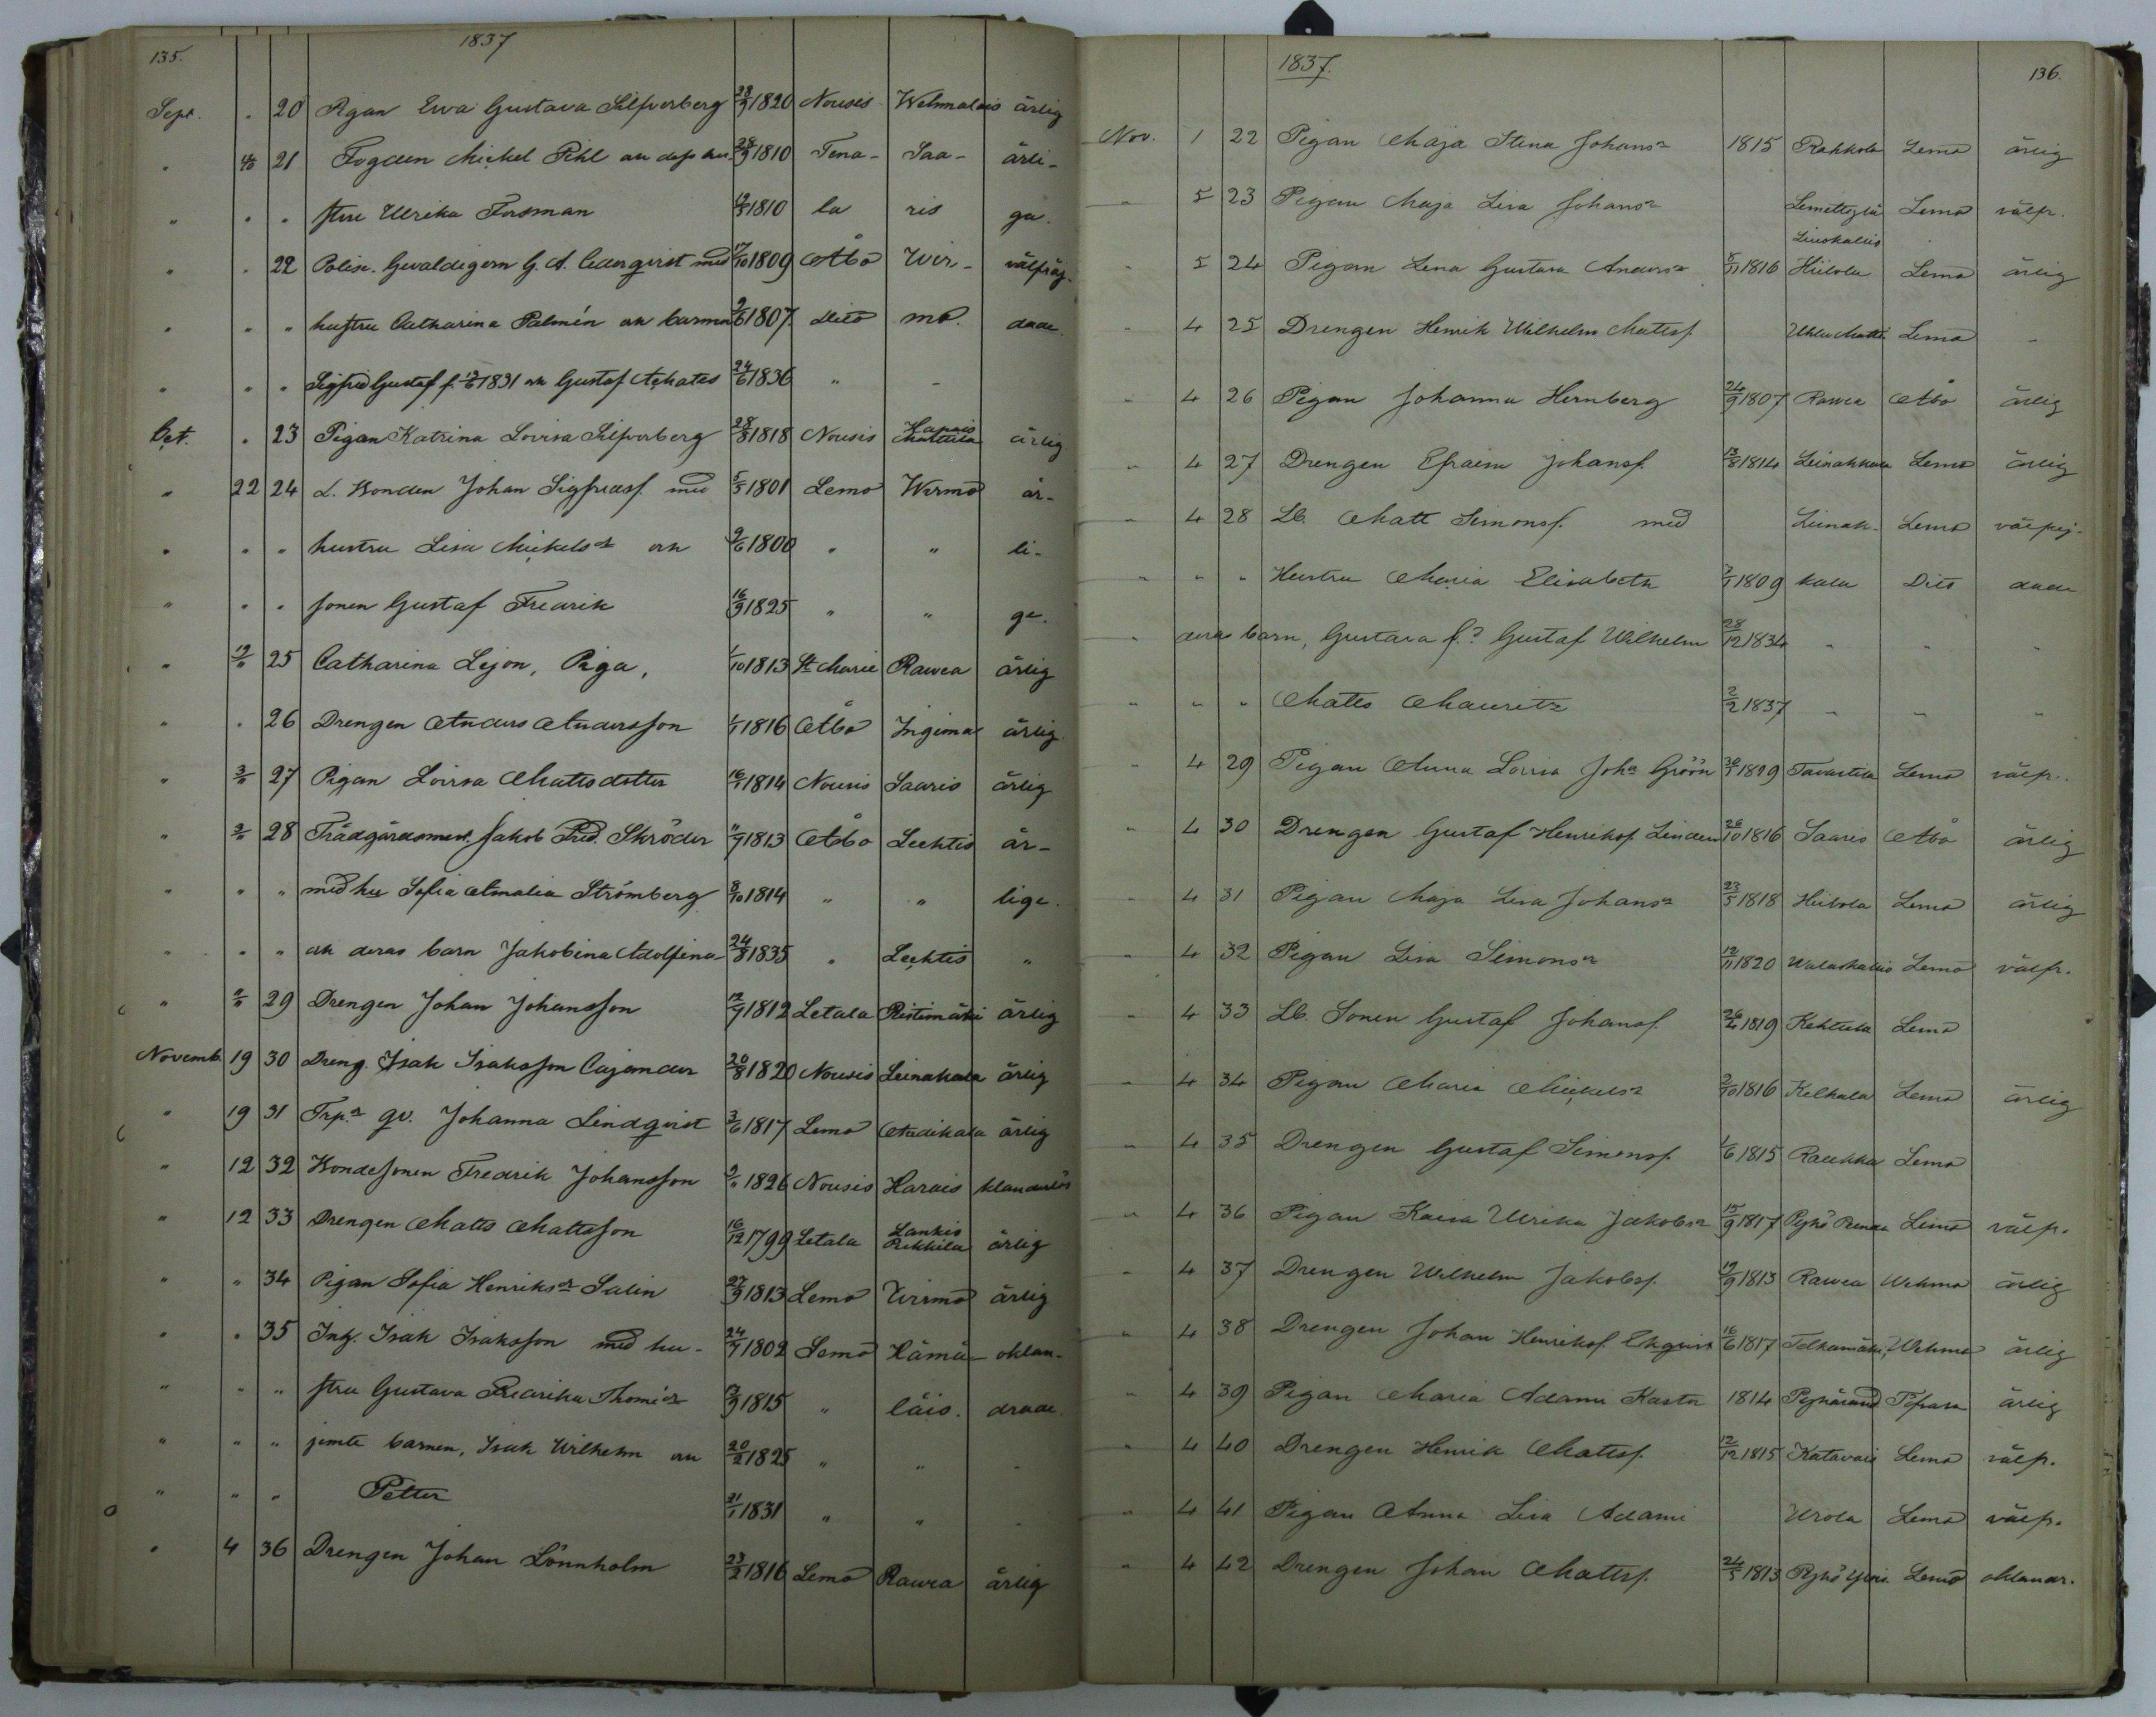 135.
1837
Sept. . 20 Pigan Ewa Gustava Silfverberg 28/9 1820 Nousis Welmalais ärlig
" 4/10 21 Fogden Michel Pihl 28/9 1810 Tena- Saa- ärli-
" " " stru Ulrika Forsman 1810 la ris ga.
" . 22 Polise. Gevaldigern G. A. Cederqvist med 17/10 1809 Åbo Wir- välfräj-
" " " hustru Catharina Palmén 1807 Dito mo. dade.
" " " Sigfrid Gustaf f. 1831 Gustaf Achates 24/6 1836 " "
Oct. . 23 Pigan Katrina Lovisa Silfverberg 28/8 1818 Nousis ärlig
" 22 24 L. Bonden Johan Sigfridsf. med 5/5 1801 Lemo Wirmo är-
" " " hustru Lisa Mickelsdr 9/6 1800 " " li-
" " " sonen Gustaf Fredrik 16/9 1825 " " ge.
" 25 Catharina Lejon, Piga, 1/10 1813 St Marie Rawea ärlig
" . 26 Drengen Anders Andersson 1/1 1816 Åbo ärlig.
" 27 Pigan Lovisa Mattsdotter 16/1 1814 Nousis Saaris ärlig
" 28 Trädgårdsmest. Jakob Fred. Skröder 1813 Åbo Lechtis är-
" " " med hu Sofia Amalia Strömberg 8/10 1814 " " lige.
" " " deras barn Jakobina Adolfina 24/8 1835 " Lechtis "
" 29 Drengen Johan Johansson 1812 Letala Ristimäki ärlig
Novemb. 19 30 Dreng. Isak Isaksson Cajander 20/8 1820 Nousis Leinakkala ärlig
" 19 31 Trp.dr qv. Johanna Lindqvist 3/6 1817 Lemo ärlig
" 12 32 Bondesonen Fredrik Johansson 1826 Nousis klanderlös
" 12 33 Drengen Matts Mattsson 16/12 1799 Letala Lankis ärlig
" " 34 Pigan Sofia Henriksdr Salin 27/9 1813 Lemo Wirmo ärlig
" " 35 Inh. Isak Isaksson med hu- 24/7 1802 Lemo Hämä- oklan-
" " " stru Gustava Fredrika Thomédr 1815 " läis. drade
" " " jemte barnen, Isak Wilhelm 20/2 1825 " " "
" " " Petter 21/1 1831 " " "
" 4 36 Drengen Johan Lönnholm 23/2 1816 Lemo Rawea ärlig
1837.
136.
Nov. 1 22 Pigan Maja Stina Johansdr 1815 Rahkola Lemo ärlig
" 5 23 Pigan Maja Lisa Johansdr Lemo välfr.
" 5 24 Pigan Lena Gustava Andersdr 8/11 1816 Hiilola Lemo ärlig
" 4 25 Drengen Henrik Wilhelm Mattsf. Lemo "
" 4 26 Pigan Johanna Hernberg 24/9 1807 Rawea Åbo ärlig
" 4 27 Drengen Efraim Johansf. 13/8 1814 Leinakkala Lemo ärlig
" 4 28 Lb. Matt Simonsf. med Leinak- Lemo välfrej-
" " " Hustru Maria Elisabeth 1809 kala Dito dade
" deras barn, Gustava f.? Gustaf Wilhelm 28/12 1834 " " "
" " " Matts Mauritz 2/2 1837 " " "
" 4 29 Pigan Anna Lovisa Johdr Gröön Tavastila Lemo välfr.
" 4 30 Drengen Gustaf Henriksf. Linden 26/10 1816 Saaris Åbo ärlig
" 4 31 Pigan Maja Lisa Johansdr 23/5 1818 Hiilola Lemo ärlig
" 4 32 Pigan Lisa Simonsdr 12/11 1820 Lemo välfr.
" 4 33 Lb. Sonen Gustaf Johansf. 26/4 1819 Lemo
" 4 34 Pigan Maria Mickelsdr 1816 Kelkala Lemo ärlig
" 4 35 Drengen Gustaf Simonsf. 1/6 1815 Lemo
" 4 36 Pigan Kaisa Ulrika Jakobsdr 15/9 1817 Lemo välfr.
" 4 37 Drengen Wilhelm Jakobsf. 19/9 1813 Rawea Wehmo ärlig
" 4 38 Drengen Johan Henriksf. Ekqvist 16/6 1817 Wehmo ärlig
" 4 39 Pigan Maria Adami Kastn 1814 ärlig
" 4 40 Drengen Henrik Mattsf. 12/12 1815 Katavais Lemo välfr.
" 4 41 Pigan Anna Lisa Adami Urola Lemo välfr.
" 4 42 Drengen Johan Mattsf. 24/5 1813 Lemo oklandr.